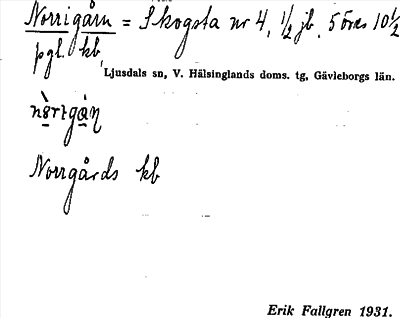 Norrigårn = Skogsta nr 4, 1/2 jb. 5 öres 10 1/2
pgl. kb
Ljusdals sn, V. Hälsinglands doms. tg, Gävleborgs län.
Norrgårds kb
Erik Fallgren 1931.